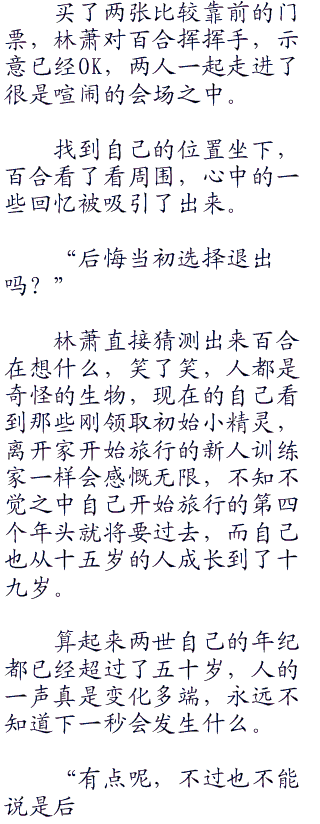 买了两张比较靠前的门
票，林萧对百合挥挥手，示
意已经OK，两人一起走进了
很是喧闹的会场之中。
找到自己的位置坐下，
百合看了看周围，心中的一
些回忆被吸引了出来。
“后悔当初选择退出
吗？”
林萧直接猜测出来百合
在想什么，笑了笑，人都是
奇怪的生物，现在的自己看
到那些刚领取初始小精灵，
离开家开始旅行的新人训练
家一样会感慨无限，不知不
觉之中自己开始旅行的第四
个年头就将要过去，而自己
也从十五岁的人成长到了十
九岁。
算起来两世自己的年纪
都已经超过了五十岁，人的
一声真是变化多端，永远不
知道下一秒会发生什么。
“有点呢，不过也不能
说是后